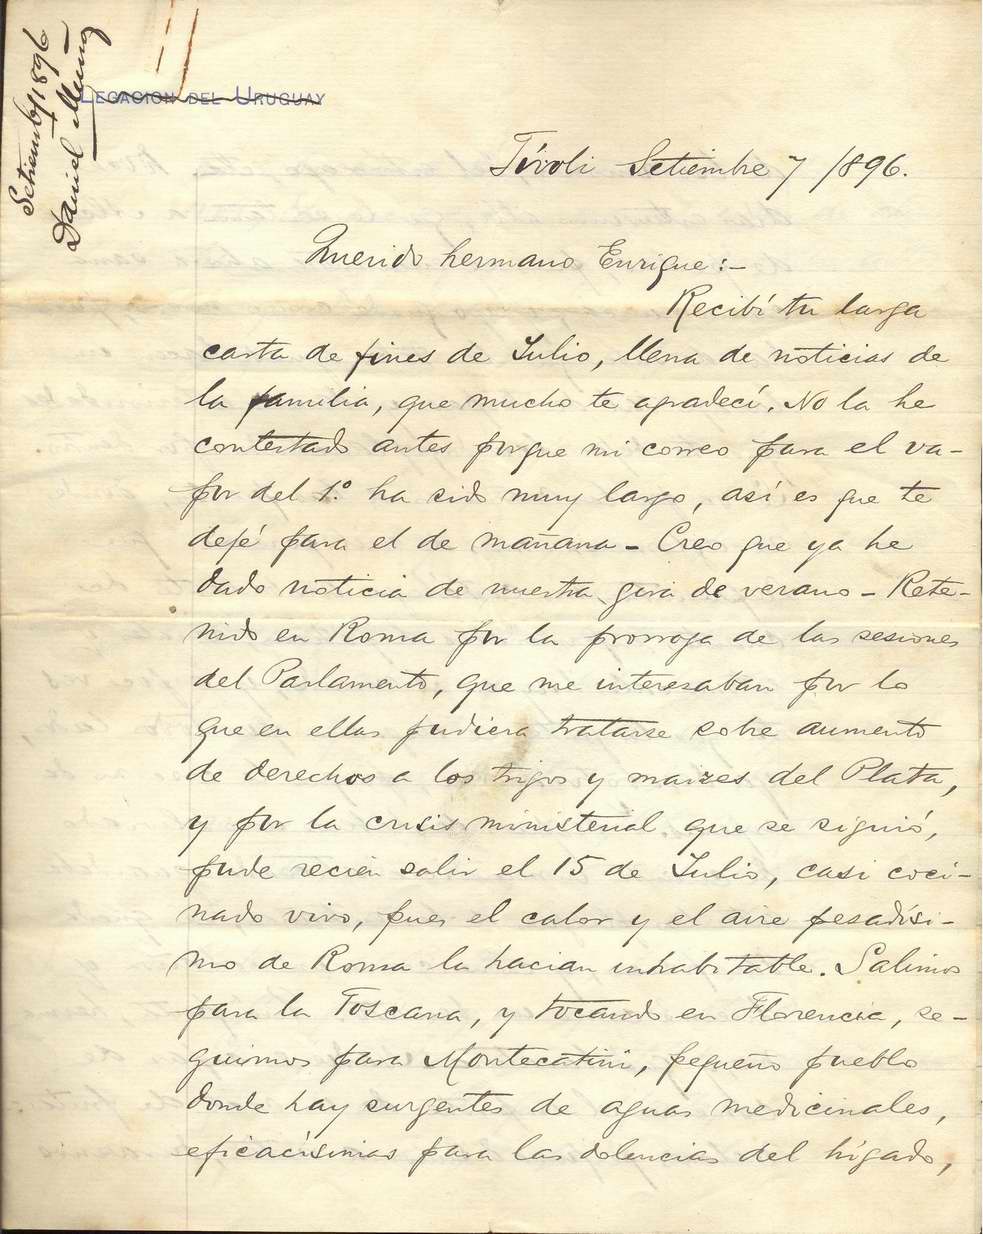 Setiemb/1896
Daniel Muñoz
LEGACION DEL URUGUAY
Tívoli Setiembre 7/1896.
Querido hermano Enrique:-
Recibí tu larga
carta de fines de Julio, llena de noticias de
la familia, que mucho te agradecí. No la he
contestado antes porque mi correo para el va-
por del 1.º ha sido muy largo, así es que te
dejé para el de mañana - Creo que ya he
dado noticia de nuestra gira de verano - Rete-
nido en Roma por la prorroga de las sesiones
del Parlamento, que me interesaban por lo
que en ellas pudiera tratarse sobre aumento
de derechos a los trigos y maizes del Plata,
y por la crisis ministerial que se siguió,
pude recien salir el 15 de Julio, casi coci-
nado vivo, pues el calor y el aire pesadísi-
mo de Roma la hacian inhabitable. Salimos
para la Toscana, y tocando en Florencia, se-
guimos para Montecatini, pequeño pueblo
donde hay surgentes de aguas medicinales,
eficacísimas para las dolencias del hígado,